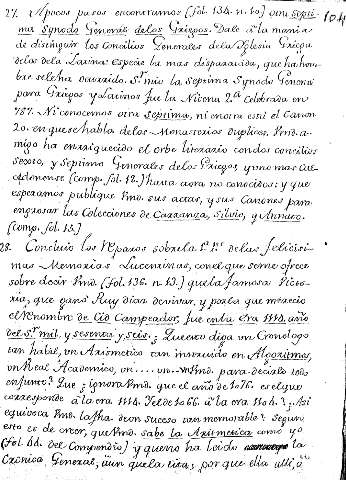 104
27. A pocos pasos encontramos (fol. 134. n. 10.) una Septi-
ma Synodo General de los Griegos. Dale à la mania
de distinguir los Concilios Generales de la Yglesia Griega
de los de la Latina: especie la mas disparatada, que ha hom-
bre se le ha ocurrido. Sr. mio la Septima Synodo General
para Griegos y Latinos fue la Nicena 2ª celebrada en
787. Ni conocemos otra Septima, ni en otra està el Canon
20. en que se habla de los Monasterios duplices. Vmd. a-
migo ha enriquecido el orbe literario con dos concilios
Sexto, y Septimo Generales de los Griegos, y uno mas Cal-
cedonense (comp. fol. 12.) hasta aora no conocidos: y que
esperamos publique Vmd. sus actas, y sus Canones para
engrosar las Colecciones de Carranza, Silvio, y Annato.
(comp. fol. 13.)
28. Concluio los Reparos sobre la 1ª pte de las felicisi-
mas Memorias Luceninas, con el que se me ofrece
sobre decir Vmd. (fol. 136. n. 13.) que la famosa Victo-
ria, que ganò Ruy Diaz de Vivar, y por la que mereciò
el Renombre de Cid Campeador, fue en la era 1114. año
del Sr. mil, y sesenta y seis. Que esto diga un Cronologo
tan habil, un Arismetico tan instruido en Algoritmos,
un Real Academico, un .... un .. Vmd. para decirlo todo
en junto? Que ¿ignora Vmd. que el año de 1076. es el que
corresponde à la era 1114. Y el de 1066. à la era 1104.? ¿Asi
equivoca Vmd. la fha. de un suceso tan memorable? Segun
esto es de creer, que Vmd. sabe la Arismetica como yo
(fol. 44. del Compendio) y que no ha leido la
Cronica General, aun que la cita; por que ella alli, à